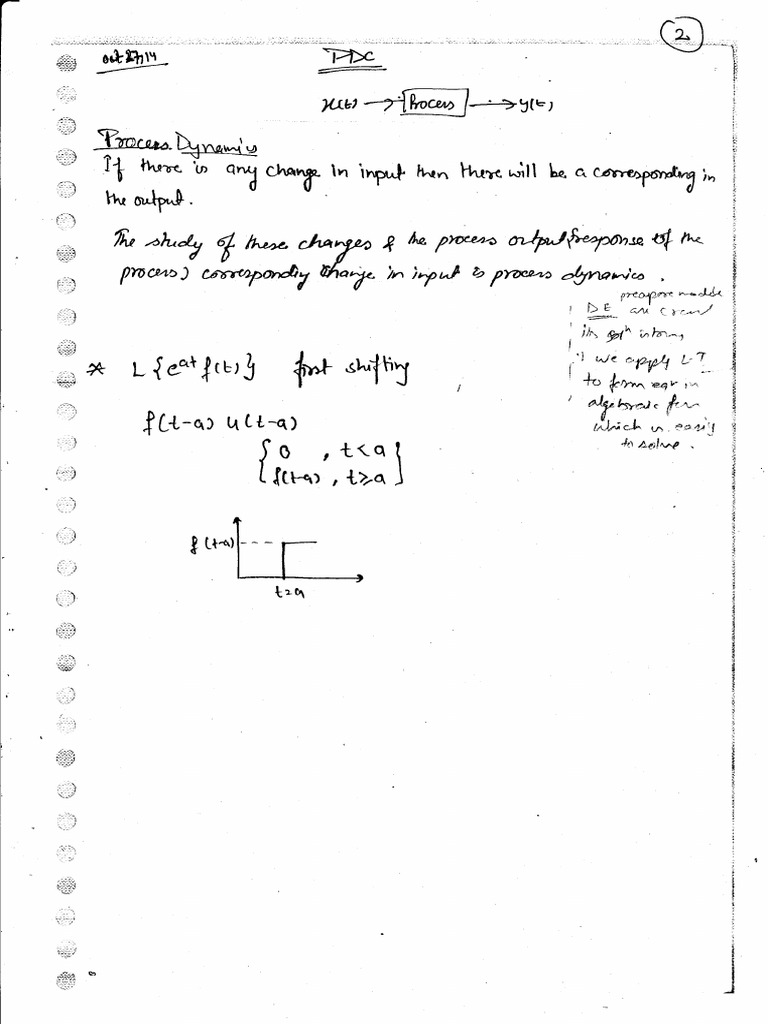 2
oct 27, 14
PDC
x(t) → Process → y(t)
Process Dynamics
If there is any change In input then there will be a corresponding in
the output.
The study of these changes & the process output (response of the
process) corresponding change in input is process dynamics.
DE are
we apply L.T
to form eqn in
algebraic
which is easily
to solve.
* L{e^{at} f(t)} first shifting
f(t-a) u(t-a)
{ 0 , t<a }
{ f(t-a) , t≥a }
f(t-a)
t=a